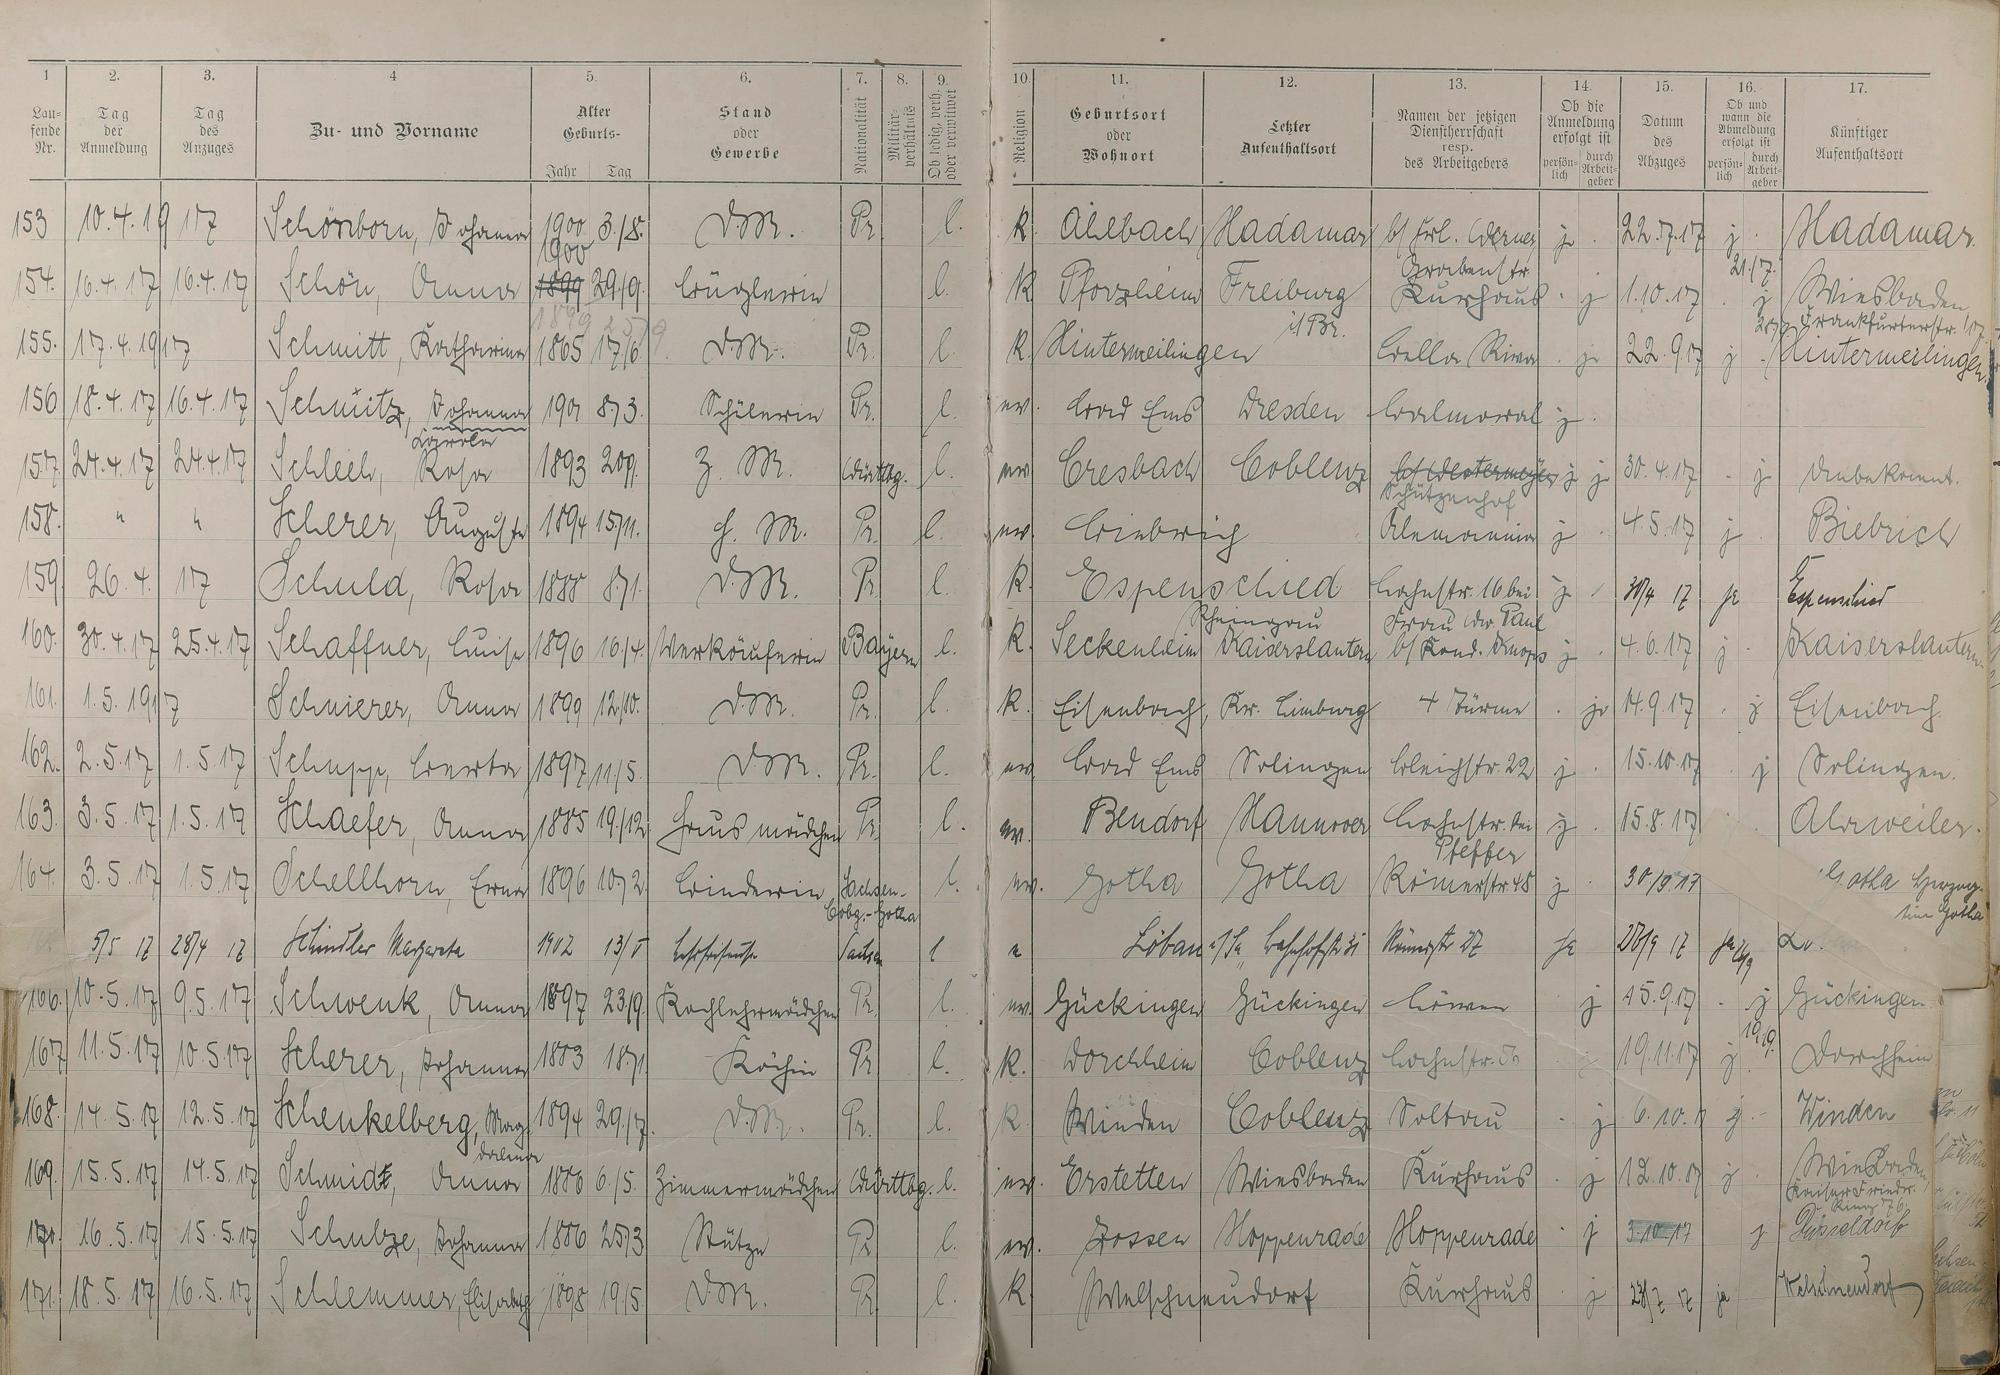 1 2. 3. 4 5. 6. 7. 8. 9. 10. 11. 12. 13. 14. 15. 16. 17.
Lau-fende Nr. Tag der Anmeldung Tag des Anzuges Zu- und Vorname Alter Geburts- Jahr Tag Stand oder Gewerbe Nationalität Militär-verhältnis Ob ledig, verh. oder verwitwet Religion Geburtsort oder Wohnort Letzter Aufenthaltsort Namen der jetzigen Dienstherrschaft resp. des Arbeitgebers Ob die Anmeldung erfolgt ist persön-lich durch Arbeit-geber Datum des Abzuges Ob und wann die Abmeldung erfolgt ist persön-lich durch Arbeit-geber Künftiger Aufenthaltsort
153 10.4.1917 Schönborn, Johanna 1900 3/8. D.M. Pr. l. K. Ahlbach Hadamar b/ Frl. j 22.7.17 j Hadamar
154. 16.4.17 16.4.17 Schön, Anna 1900 1899 29/9. Büglerin l. K Pforzheim Freiburg i/Br. Grabenstr. Kurhaus j 1.10.17 21/17. j Wiesbaden, Frankfurterstr.
155. 17.4.1917 Schmitt, Katharina 1865 17/6 D.M. Pr. l. K. Hintermeilingen Bella Riva j 22.9.17 j Hintermeilingen
156 18.4.17 16.4.17 Schmitz, Johanna Carola 1901 8/3. Schülerin Pr. l. ev. Bad Ems Dresden Balmoral j
157. 24.4.17 24.4.17 Schleeh, Rosa 1893 20/9. Z. M. Württbg. l. ev Cresbach Coblenz b/ Westermeyer Schützenhof j j 30.4.17 j Unbekannt.
158. " " Scherer, Auguste 1894 15/11. H. M. Pr. l. ev. Biebrich Alemannia j 4.5.17 j Biebrich
159. 26.4.17 Schuld, Rosa 1888 8/1. D.M. Pr l. K. Espenschied Rheingau Lahnstr. 16 bei Frau Ww. Paul j 30/4 17 ja Espenschied
160. 30.4.17 25.4.17 Schaffner, Luise 1896 16/4. Verkäuferin Bayern l. K. Seckenheim Kaiserslautern b/ Kond. Knops j 4.6.17 j Kaiserslautern
161. 1.5.1917 Schnierer, Anna 1899 12/10. D.M. Pr. l. K. Eisenbach, Kr. Limburg 4 Türme ja 14.9.17 j Eisenbach.
162. 2.5.17 1.5.17 Schupp, Berta 1897 11/5. D.M. Pr. l. ev. Bad Ems Solingen Bleichstr. 22 j 15.10.17 j Solingen.
163. 3.5.17 1.5.17 Schaefer, Anna 1885 19/12. Hausmädchen Pr. l. ev. Bendorf Hannover Lahnstr. bei Pfeffer j 15.8.17 Ahrweiler.
164. 3.5.17 1.5.17 Schellhorn, Erna 1896 10/2. Binderin Sachsen-Cobg.-Gotha l. ev. Gotha Gotha Römerstr. 48 j 30/9.17 Gotha
5/5 17 28/4 17 Schindler Margareta 1902 13/5 Sachsen l e Löbau i/Sa. Bahnhofstr 31 Römerstr 27 ja 27/9 17 ja
166. 10.5.17 9.5.17 Schwenk, Anna 1897 23/9. Kochlehrmädchen Pr. l. ev. Gückingen Gückingen Löwen j 15.9.17 j Gückingen
167 11.5.17 10.5.17 Scherer, Johanna 1883 18/1. Köchin Pr l. K. Dorchheim Coblenz Lahnstr. j 19.11.17 j 19/9. Dorchheim
168. 14.5.17 12.5.17 Schenkelberg, Mag-dalena 1894 29/7. D.M. Pr. l. K Winden Coblenz Soltau j 6.10.17 j Winden
169. 15.5.17 14.5.17 Schmidt, Anna 1886 6/5. Zimmermädchen Württbg. l. ev. Erstetten Wiesbaden Kurhaus j 12.10.17 j Wiesbaden, Kaiser Friedr. Ring 76.
170. 16.5.17 15.5.17 Schulze, Johanna 1886 25/3 Stütze Pr l. ev. Zossen Hoppenrade Hoppenrade j 3.10.17 j Düsseldorf
171. 18.5.17 16.5.17 Schlemmer, Elisabeth 1898 19/5. D.M. Pr l. K. Welschneudorf Kurhaus j 23/7 17 ja Welschneudorf